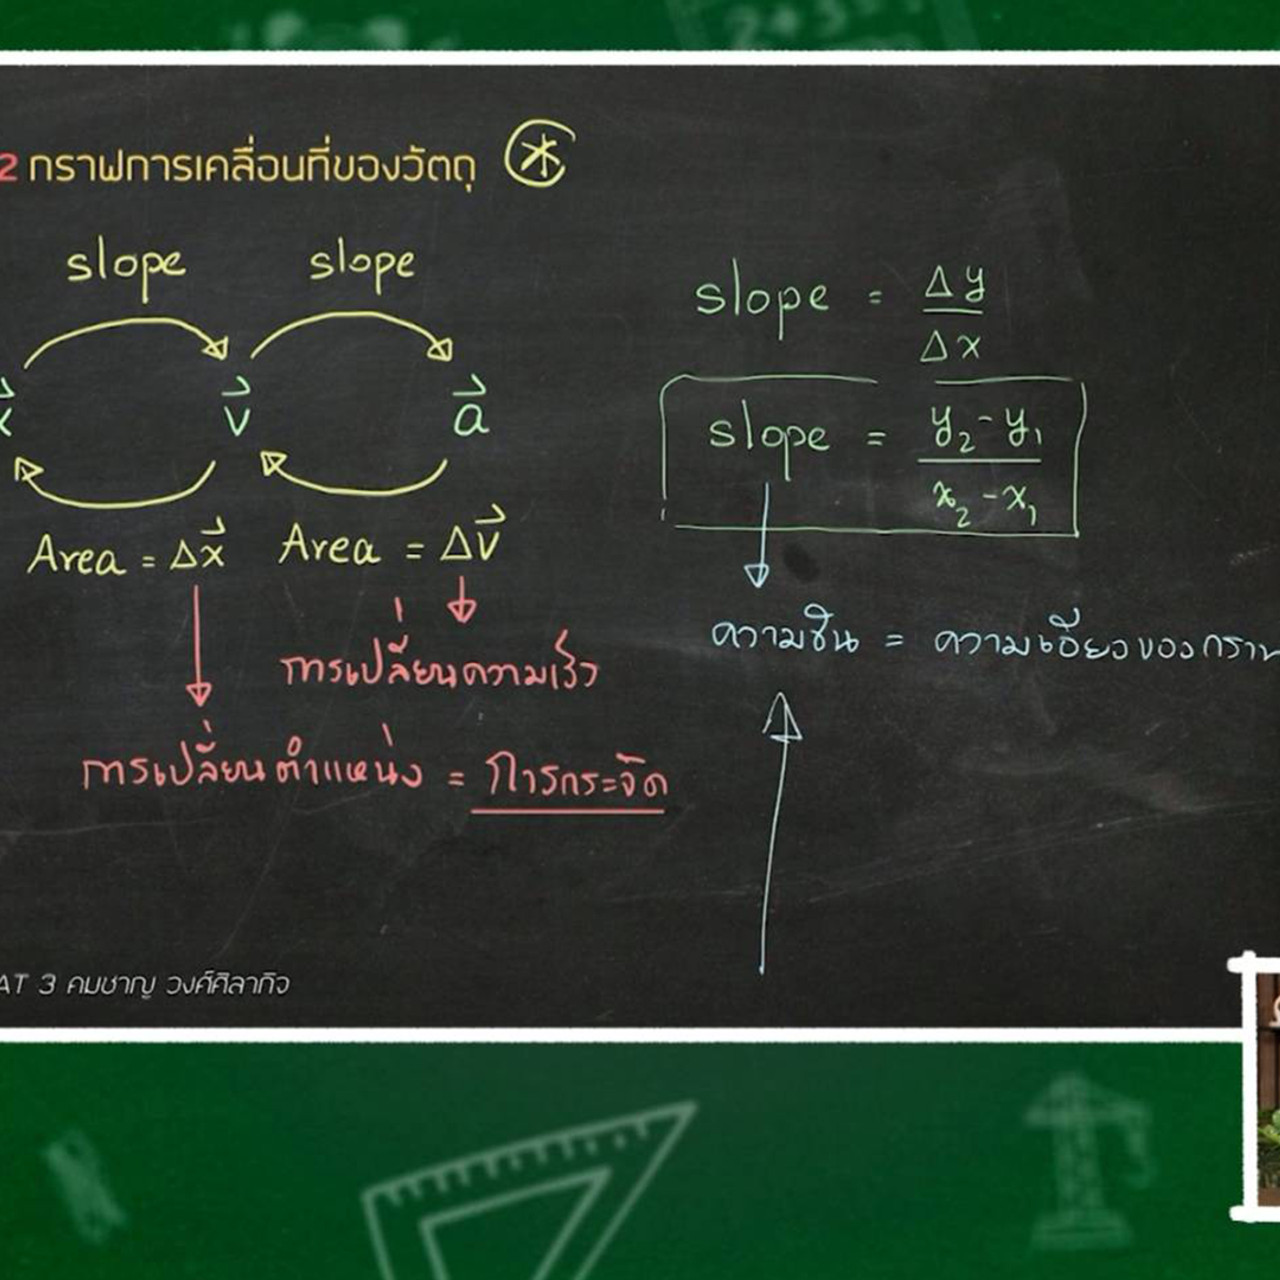 2 กราฟการเคลื่อนที่ของวัตถุ
slope slope
x v a
Area = Δx Area = Δv
การเปลี่ยนความเร็ว
การเปลี่ยนตำแหน่ง = การกระจัด
slope = Δy / Δx
slope = y₂ - y₁ / x₂ - x₁
ความชัน = ความเอียงของกราฟ
AT 3 คมชาญ วงศ์ศิลากิจ
2+3